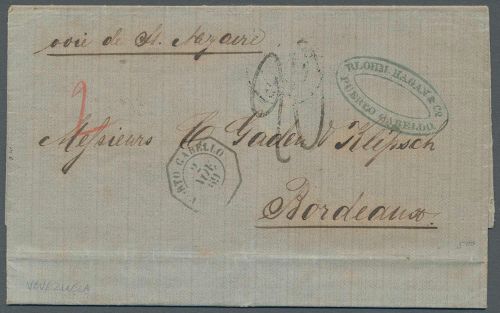 voie de St. Nazaire
2
20
BLOHM, HAGAN & Co
PUERTO CABELLO.
Messieurs C. Gaden & Klipsch
PORTO CABELLO
2
NOV.
69
Bordeaux.
500
VENEZUELA